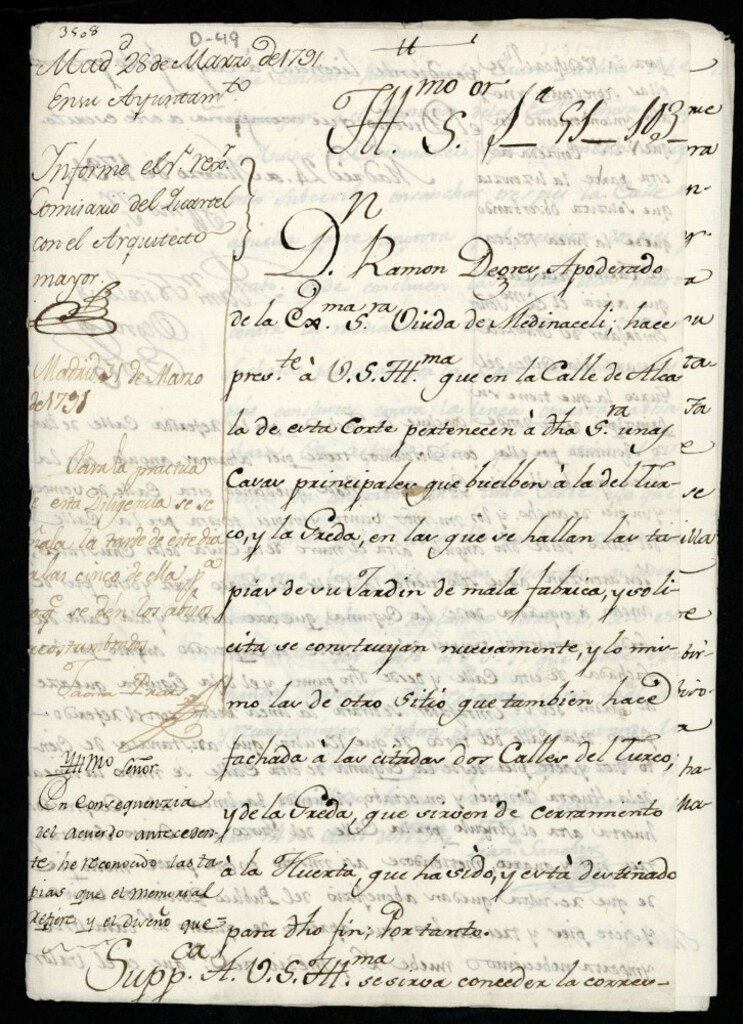 3508
D-49
Mad.d 28 de Marzo de 1791.
En su Ayuntam.to
Informe el s.r
Comisario del Quartel
con el Arquitecto
mayor.
Madrid 31 de Marzo
de 1791
Para la practica
e esta Diligencia se se
ñala la tarde de este dia
a las cinco de ella p.a
q.e se dén los avisos
acostumbrados
Yllmo Señor
En Consequenzia
del acuerdo anteceden-
te he reconocido las ta
pias que el Memorial
refiere y el diseño que=
Ill.mo S.or 1a 51 103
D.n Ramon Degrev, Apoderado
de la Ex.ma S.ra Viuda de Medinaceli; hace
pres.te à V.S.Ill.ma que en la Calle de Alca
la de esta Corte pertenecen à dha S.ra unas
Casas principales que buelben à la del Tur-
co, y la Greda, en las que se hallan las ta-
pias de su Jardin de mala fabrica, y soli
cita se construyan nuevamente, y lo mis
mo las de otro sitio que tambien hace
fachada à las citadas dos Calles del Turco,
y de la Greda, que sirven de cerramiento
à la Huerta, que ha sido, y està destinado
para dho fin; Por tanto.
Supp.ca A. V.S.Ill.ma se sirva conceder la corres-